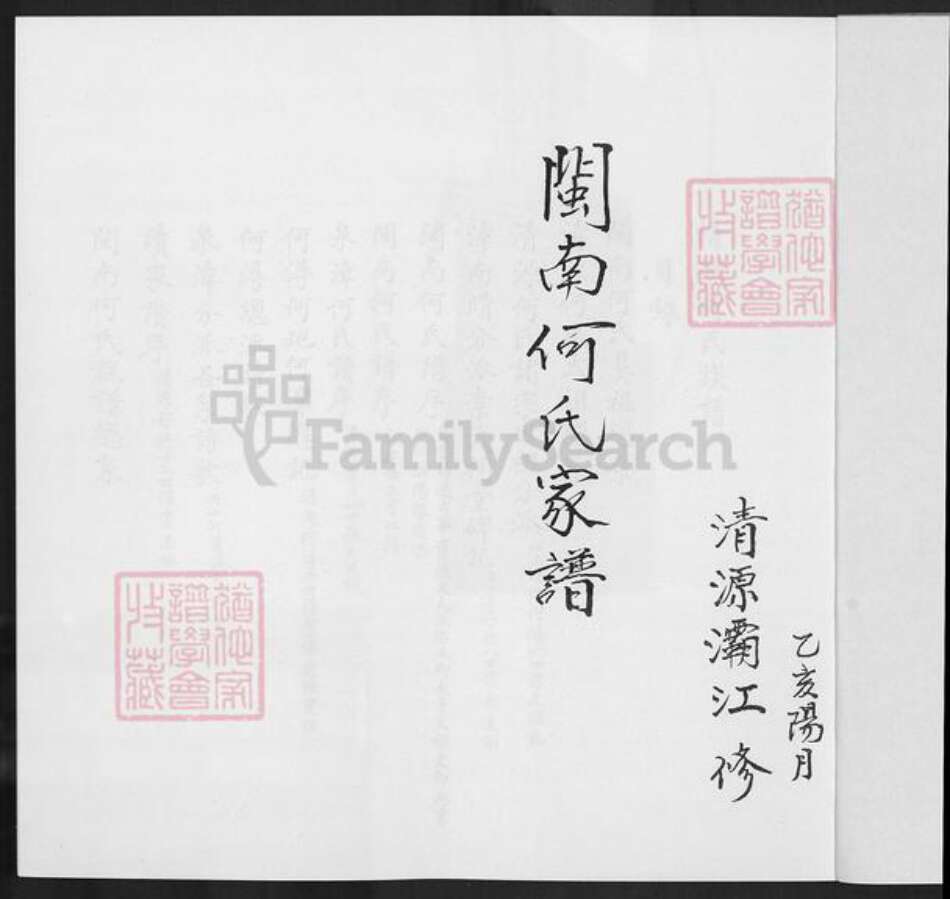 乙亥陽月
清源灞江 修
閩南何氏家譜
猶他家
譜學會
收藏
猶他家
譜學會
收藏
FamilySearch